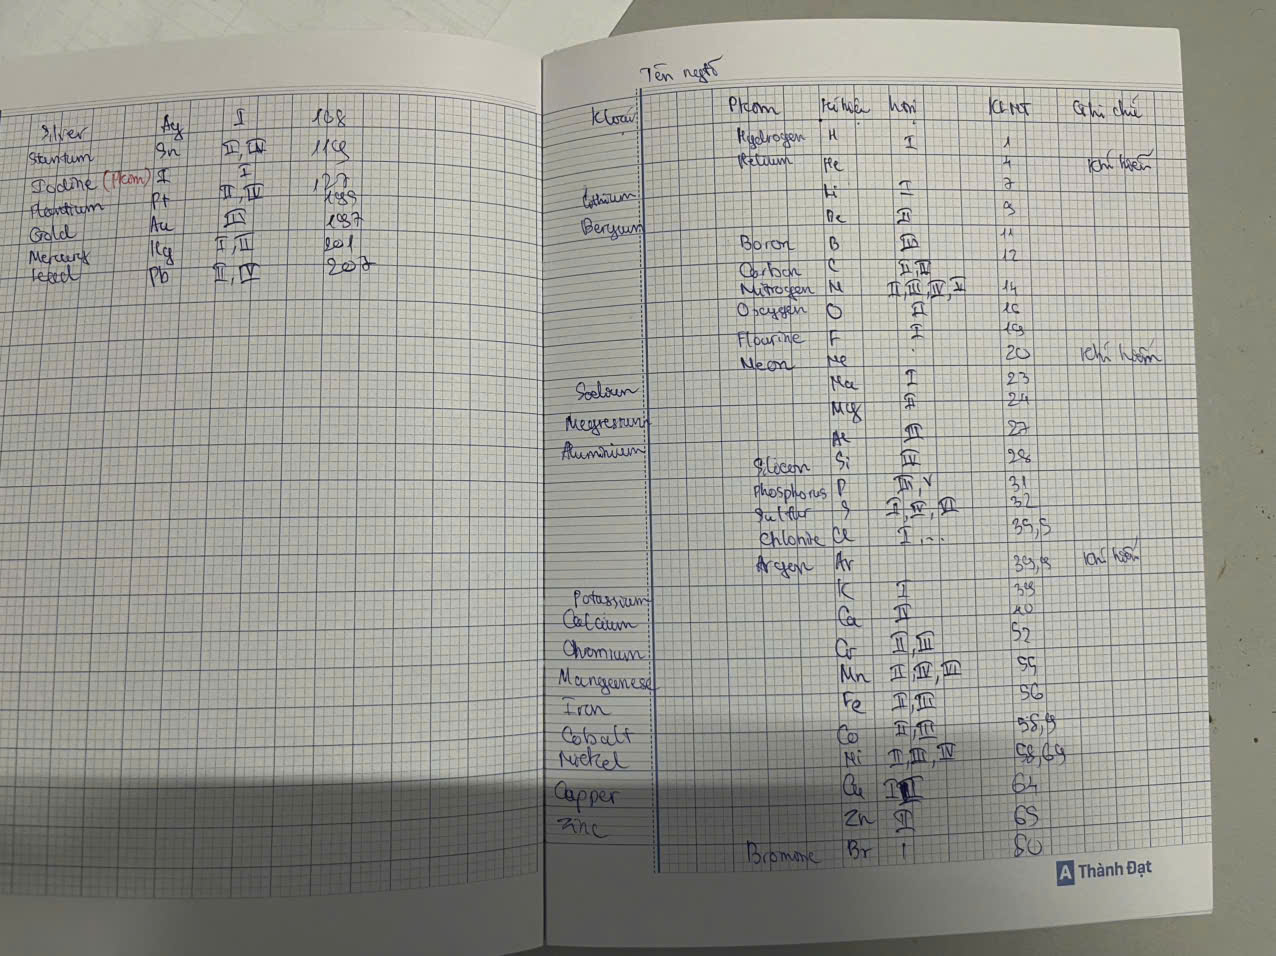 Silver Ag I 108
Stantum Sn II, IV 119
Iodine (Pkom) I I 127
Plantium Pt II, IV 195
Gold Au III 197
Mercury Hg I, II 201
Leed Pb II, IV 207
Tên ngtố
Kloại Pkom Kí hiệu htrị KLNT Ghi chú
Hydrogen H I 1
Helium He 4 khí hiếm
Lithium Li I 7
Beryium Be II 9
Boron B III 11
Carbon C II, IV 12
Nitrogen N II, III, IV, V 14
Oxygen O II 16
Flourine F I 19
Neon Ne 20 khí hiếm
Sodium Na I 23
Magnesium Mg II 24
Aluminium Al III 27
Silicon Si IV 28
Phosphorus P III, V 31
Sulfur S II, IV, VI 32
Chlorine Cl I, ... 35,5
Argon Ar 39,9 khí hiếm
Potassium K I 39
Calcium Ca II 40
Chromium Cr II, III 52
Manganese Mn II, IV, VI 55
Iron Fe II, III 56
Cobalt Co II, III 58,9
Nickel Ni II, III, IV 58,69
Copper Cu I II 64
Zinc Zn II 65
Bromine Br I 80
A Thành Đạt